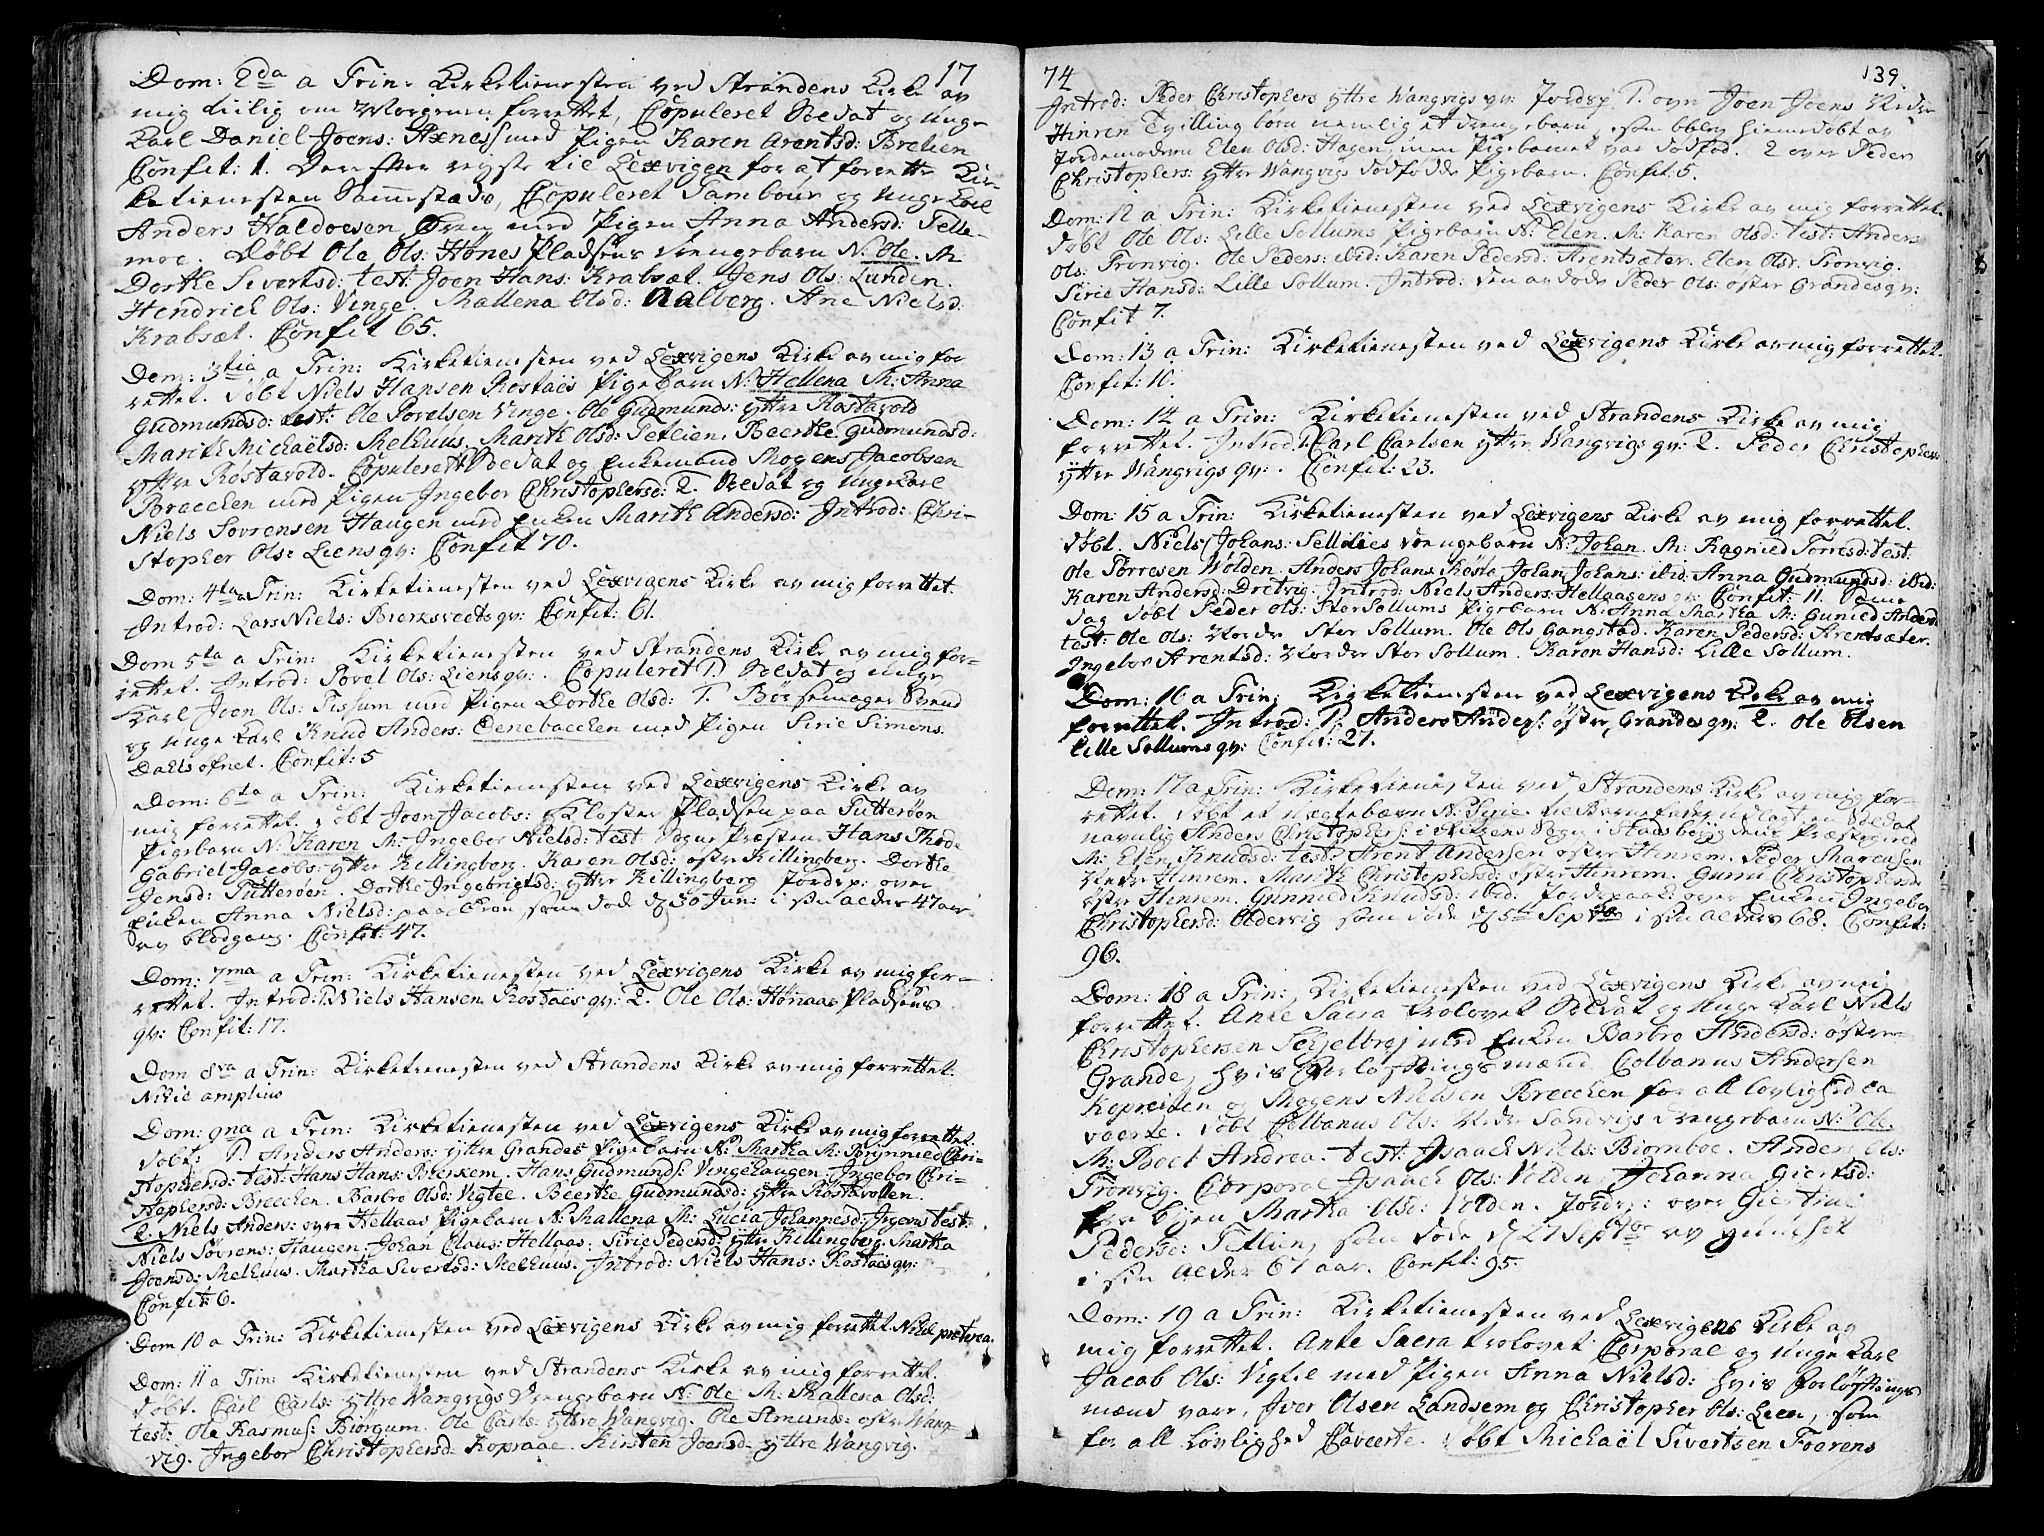 17
Dom: 2da a Trin: Kirketienesten ved Strandens Kirke av
mig tiilig om Morgenen forrettet, Copuleret Soldat og unge
Karl Daniel Joens: Axnes med Pigen Karen Arentsd: Brelien
Confit: 1. Derefter reyste til Lexvigen for at forrette Kir-
ketienesten Sammestæds, Copuleret Tambour og unge Karl
Anders Haldorsen Øren med Pigen Anna Andersd: Telle-
moe. Døbt Ole Ols: Hønes Pladsens Drengebarn N: Ole. M:
Dorthe Sivertsd: test: Joen Hans: Krabsæt. Jens Ols: Lunden.
Hendrich Ols: Vinge. Mallena Olsd: Aalberg. Ane Nielsd:
Krabsæt. Confit 65.
Dom: 3tia a Trin: Kirketienesten ved Lexvigens Kirke av mig for
rettet. Døbt Niels Hansen Rostaës Pigebarn N: Hellena M: Anna
Gudmundsd: test: Ole Povelsen Vinge. Ole Gudmunds: yttre Rostavold
Marith Michaëlsd: Melhuus. Marith Olsd: Tetlien. Beerthe Gudmundsd:
yttre Røstavold. Copuleret Soldat og Enkemand Mogens Jacobsen
Bræcken med Pigen Ingebor Christophersd: 2. Soldat og unge Karl
Niels Sørrensen Haugen med Enken Marith Andersd: Introd: Chri-
stopher Ols: Liens qv: Confit 70.
Dom: 4ta a Trin: Kirketienesten ved Lexvigens Kirke av mig forrettet.
Introd: Lars Niels: Bierksveets qv: Confit: 61.
Dom 5ta a Trin: Kirketienesten ved Strandens Kirke av mig for-
rettet. Introd: Povel Ols: Liens qv: Copuleret 1. Soldat og unge
Karl Joen Ols: Tissum med Pigen Dorthe Olsd: 2. Bøssemager Svend
og unge Karl Knud Anders: Denebæcken med Pigen Sirie Simons:
Dahls ofnet. Confit: 5
Dom: 6ta a Trin: Kirketienesten ved Lexvigens Kirke av
mig forrettet. Døbt Joen Jacobs: Kloster Pladsen paa Tutterøen
Pigebarn N: Karen M: Ingebor Nielsd: test: Sogne Præsten Hans Thode
Gabriel Jacobs: yttre Killingberg. Karen Olsd: østre Killingberg. Dorthe
Jensd: Tutterøen. Dorthe Ingebrigtsd: yttre Killingberg Jordsp: over
Enken Anna Nielsd: paa Øren som døde d 30 Jun: i sin alder 47 aar
av blodgang. Confit: 47.
Dom: 7ma a Trin: Kirketienesten ved Lexvigens Kirke av mig for-
rettet. Introd: 1. Niels Hansen Rostaës qv: 2. Ole Ols: Hønaas Pladsens
qv: Confit: 17.
Dom 8va a Trin: Kirketienesten ved Strandens Kirke av mig forrettet.
Nihil amplius
Dom: 9na a Trin: Kirketienesten ved Lexvigens Kirke av mig forrettet.
Døbt: 1. Anders Anders: yttre Grandes Pigebarn N: Martha M: Brynnied Chri-
stophersd: test: Hans Hans: Bierkem. Hans Gudmunds: Vingehaugen. Ingebor Chri-
stophersd: Bræcken. Barbro Olsd: Vigtel. Beerthe Gudmundsd: yttre Rostavollen.
2. Niels Anders: øvre Hellaas Pigebarn N: Mallena M: Lucia Johannesd: Irgens test:
Niels Sørrens: Haugen. Johan Claus: Hellaas. Sirie Pedersd: yttre Killingberg. Martha
Joensd: Melhuus. Martha Sivertsd: Melhuus. Introd: Niels Hans: Rostaës qv:
Confit: 6.
Dom 10 a Trin: Kirketienesten ved Lexvigens Kirke av mig forrettet. Nihil præterea.
Dom: 11 a Trin: Kirketienesten ved Strandens Kirke av mig forrettet.
Døbt. Carl Carls: yttre Wangvigs Drengebarn N: Ole M: Mallena Olsd:
test: Ole Rasmus: Biørgum. Ole Carls: yttre Wangvig. Ole Simunds: østre Wang-
vig. Ingebor Christophersd: Kopraae. Kirsten Joensd: yttre Wangvig.
74
139.
Introd: Peder Christophers yttre Wangvigs qv: Jordsp. 1. over Joen Joens
Hinren Tvilling børn nemlig et Drengebarn, som blev hiemedøbt av
Jordemoderen Elen Olsd: Hagen, men Pigebarnet var dødfød. 2 over Peder
Christophers: yttre Wangvigs dødfødde Pigebarn. Confit: 5.
Dom: 12 a Trin: Kirketienesten ved Lexvigens Kirke av mig forrettet.
Døbt Ole Ols: Lille Sollums Pigebarn N: Elen. M: Karen Olsd: test: Anders
Ols: Tronvig. Ole Peders: ibid: Karen Pedersd: Arentsæter. Elen Olsd: Tronvig.
Sirie Hansd: Lille Sollum. Introd: den avdøde Peder Ols: øster Grandes qv:
Confit 7.
Dom: 13 a Trin: Kirketienesten ved Lexvigens Kirke av mig forrettet.
Confit: 10.
Dom: 14 a Trin: Kirketienesten ved Strandens Kirke av mig
forrettet. Introd: 1. Carl Carlsen yttre Wangvigs qv: 2. Peder Christophers:
yttre Wangvigs qv: Confit: 23.
Dom: 15 a Trin: Kirketienesten ved Lexvigens Kirke av mig forrettet.
Døbt. Niels Johans: Sellilies Drengebarn N: Johan. M: Ragnied Torresd: test:
Ole Torresen Wolden. Anders Johans: Røste Johan Johans: ibid: Anna Gudmundsd: ibid:
Karen Andersd: Dretvig. Introd: Niels Anders: Hellaasens qv: Confit: 11. Samme
Dag døbt Peder Ols: Stor Sollums Pigebarn N: Anna Martha M: Gunied Andersd:
test: Ole Ols: Nordre Stor Sollum. Ole Ols Gangstad. Karen Pedersd: Arentsæter.
Ingebor Arentsd: Nordre Stor Sollum. Karen Hansd: Lille Sollum.
Dom: 16 a Trin: Kirketienesten ved Lexvigens Kirke av mig
forrettet. Introd: 1. Anders Anders: østre Grandes qv: 2. Ole Olsen
Lille Sollums qv: Confit: 27.
Dom: 17 a Trin: Kirketienesten ved Strandens Kirke av mig for-
rettet. Døbt et uægtebarn N: Sirie. til Barnefader udlagt en Soldat
navnlig Anders Christophers: i Sogn i Stadsbøydens Præstegield
M: Elen Knudsd: test: Arent Andersen østre Hinrem. Peder Marcusen
Hinrem. Marith Christophersd: østre Hinrem. Guru Christophersd:
østre Hinrem. Gunnild Knudsd: ibid: Jordspaak: over Enken Ingebor
Christophersd: Oldervig som døde d 5te Septbr i sin alders 68. Confit:
96.
Dom: 18 a Trin: Kirketienesten ved Lexvigens Kirke av mig
forrettet. Ante Sacra trolovet Soldat og unge Karl Niels
Christophersen Schjelbrej med Enken Barbro Andersd: østre
Grande, hvis Forløftningsmænd Colbanus Andersen
Kopreiten og Mogens Nielsen Brecchen for all lovlighed ca
veerte. Døbt Colbanus Ols: Sandvigs Drengebarn N: Ole.
M: Boel Andrea. test: Isaach Niels: Biømboe. Anders Ols:
Tronvig. Corporal Isaach Ols: Volden. Johanna Giertsd:
fra byen Martha Olsd: Volden. Jordsp: over Giertrue
Pedersd: Tetlien, som døde d 27 Septbr av
i sin alder 67 aar. Confit: 95.
Dom: 19 a Trin: Kirketienesten ved Lexvigens Kirke av
mig forrettet. Ante Sacra trolovet Corporal og unge Karl
Jacob Ols: Vigtel med Pigen Anna Nielsd: hvis Forløftnings
mænd vare, Iver Olsen Landsem og Christopher Ols: Leen, som
for all Lovlighed Caveerte. Døbt Michaël Sivertsen Foerens